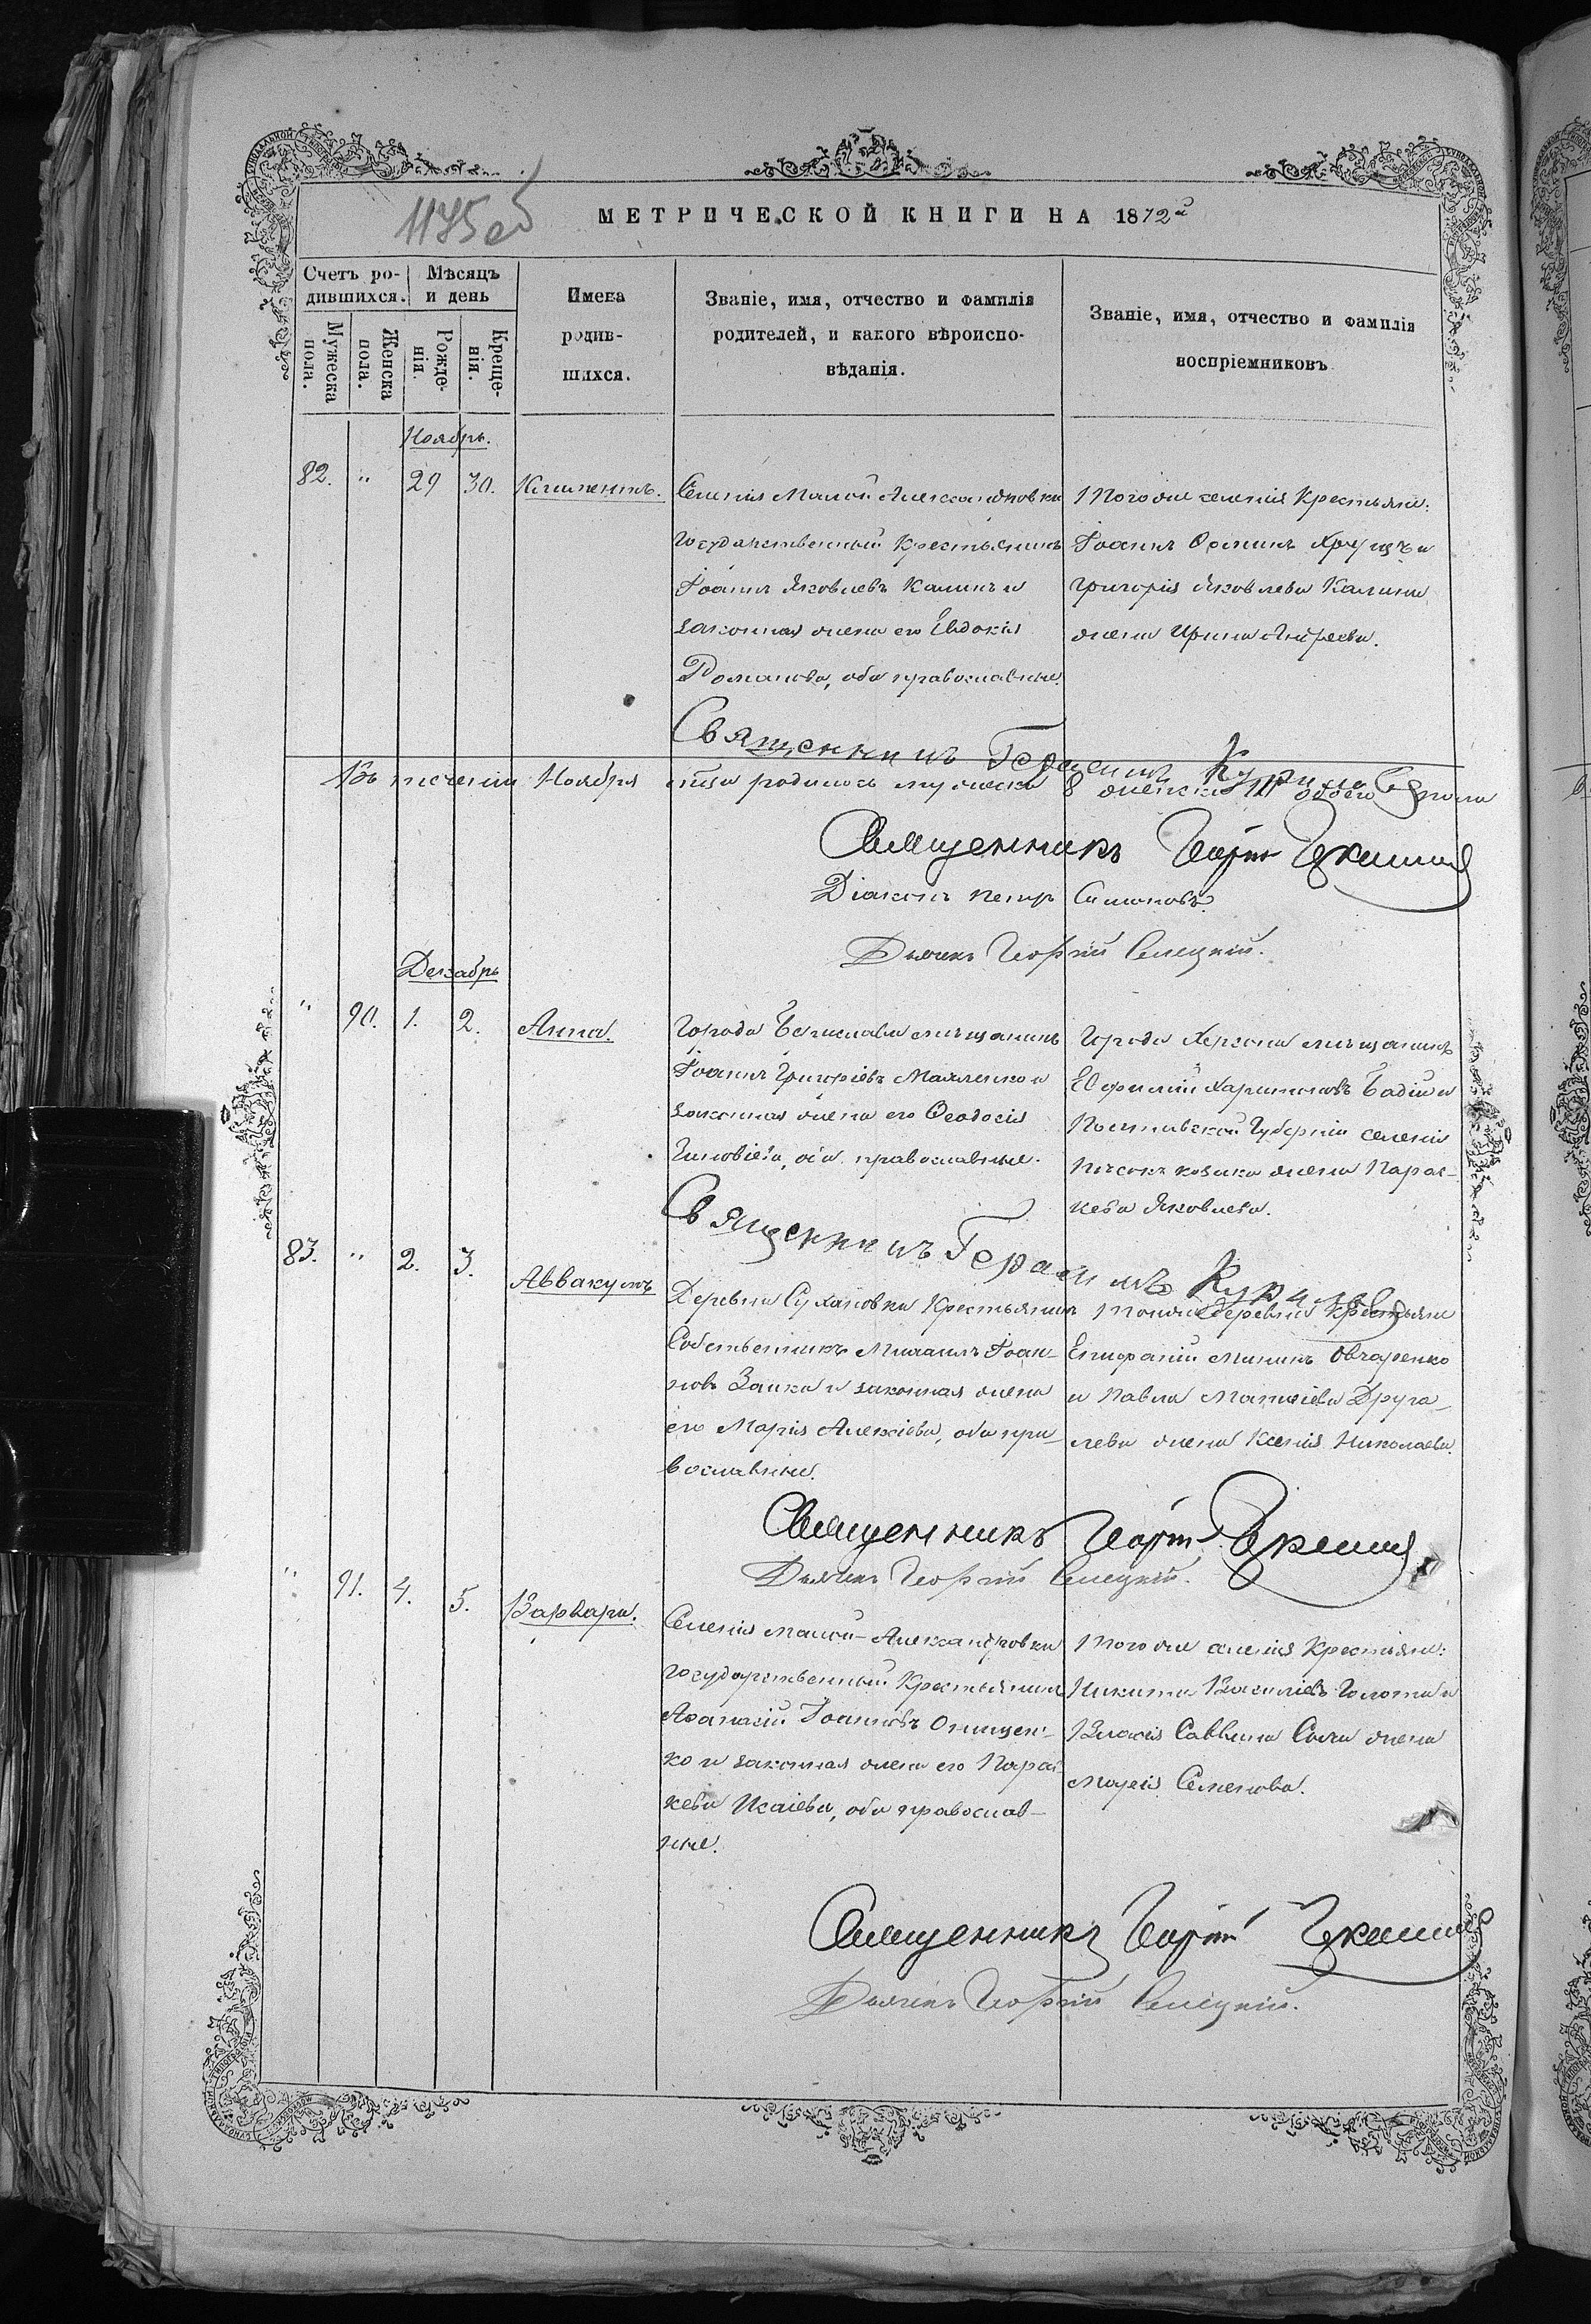 1175 об
МЕТРИЧЕСКОЙ КНИГИ НА 1872й
Счетъ ро-
дившихся.
Мѣсяцъ
и день
Мужеска
пола.
Женска
пола.
Рожде-
нія.
Креще-
нія.
Имена
родив-
шихся.
Званіе, имя, отчество и фамилія
родителей, и какого вѣроиспо-
вѣданія.
Званіе, имя, отчество и фамилія
воспріемниковъ
Ноябрь.
82. " 29 30. Климентъ.
Селенія Малой Александровки
Государственный Крестьянинъ
Іоаннъ Яковлевъ Калинъ и
законная жена его Евдокія
Романова, оба православные.
Того же селенія Крестьяне:
Іоаннъ Хрущъ и
Григорія Яковлева Калина
жена Ирина Андреева.
Священникъ Герасимъ
Въ теченіи Ноября м-ца родилось мужеска 8 женска 11 обоего пола
Священникъ
Діаконъ Петръ Симоновъ.
Дьячекъ Георгій
Декабрь
" 90. 1. 2. Анна.
Города Берислава мѣщанинъ
Іоаннъ Григоріевъ и
законная жена его Ѳеодосія
оба православные.
Города Херсона мѣщанинъ
Евфимій Харитоновъ Бадій и
Полтавской Губерніи селенія
Пѣсокъ козака жена Парас-
кева Яковлева.
Священникъ Герасимъ
83. " 2. 3. Аввакумъ
Деревни Сухановки Крестьянинъ
Собственникъ Михаилъ Іоан-
новъ Заика и законная жена
его Марія Алексіева, оба пра-
вославные.
Тойже деревни Крестьяне
Епифаній Мининъ Овчаренко
и Павла Матѳіева Друга-
лева жена Ксенія Николаева.
Священникъ
Дьячекъ Георгій
" 91. 4. 5. Варвара.
Селенія Малой-Александровки
государственный Крестьянинъ
Аѳанасій Іоанновъ Онищен-
ко и законная жена его Парас
кева Исаіева, оба православ-
ные.
Того же селенія Крестьяне:
Никита Василіевъ Голота и
Власія Саввина жена
Марія Семенова.
Священникъ
Дьячекъ Георгій